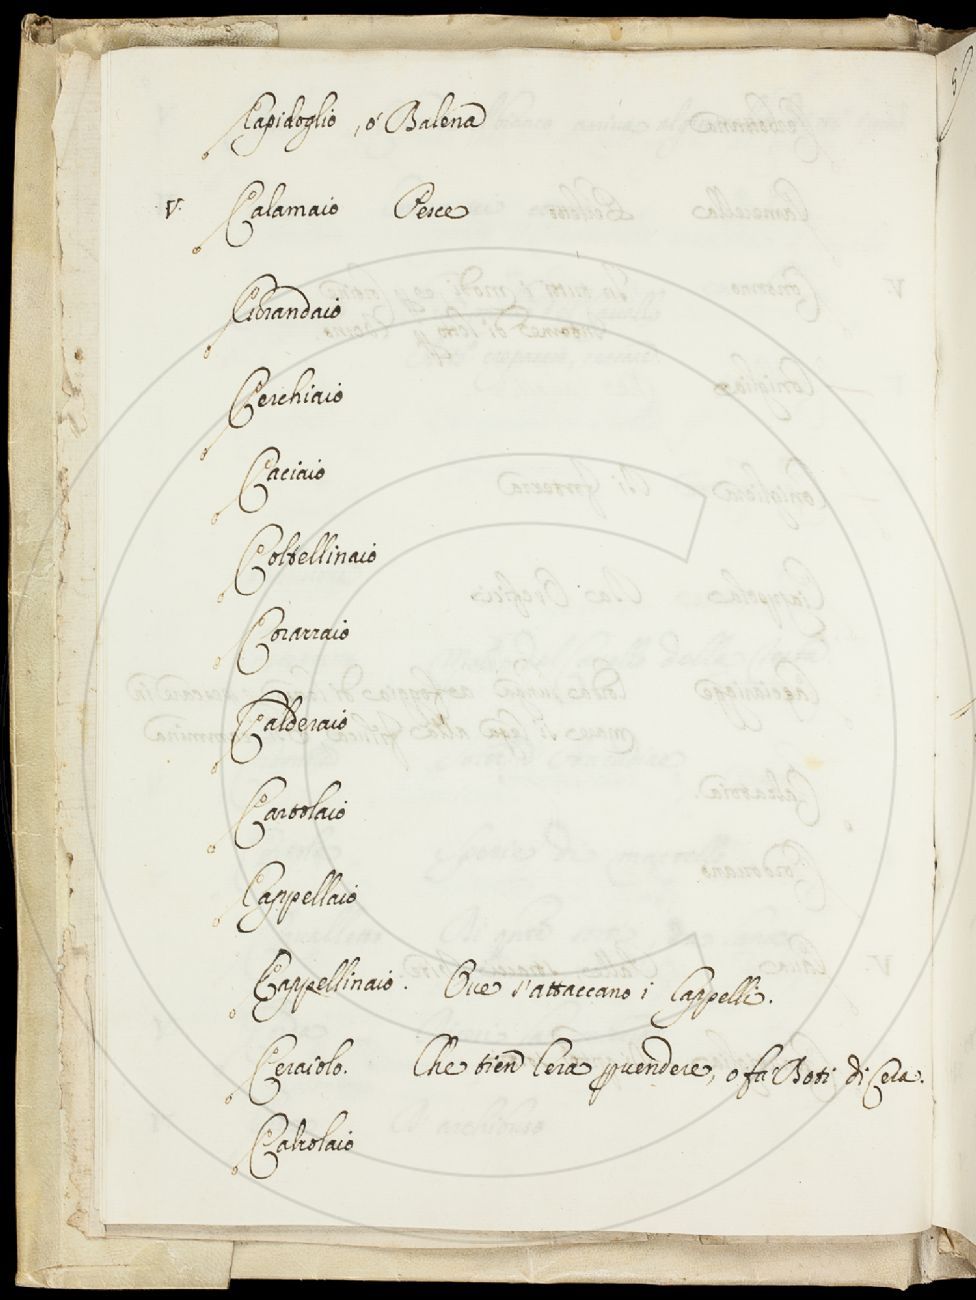 Capidoglio, o' Balena
V. Calamaio Pesce
Cerchiaio
Caciaio
Coltellinaio
Corazzaio
Calderaio
Cartolaio
Cappellaio
Cappellinaio. Oue s'attaccano i Cappelli.
Ceraiolo. Che tien Cera p uendere, o fa Boti di Cera.
Calzolaio